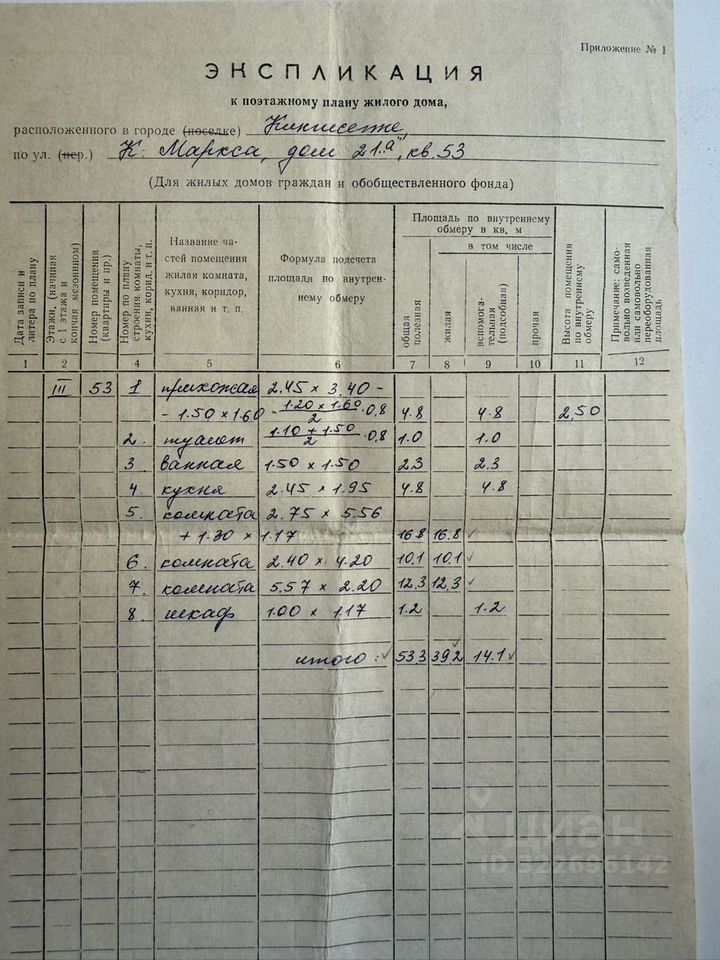 Приложение № 1
ЭКСПЛИКАЦИЯ
к поэтажному плану жилого дома,
расположенного в городе (поселке)
по ул. (пер.) К. Маркса, дом 21 "а", кв. 53
(Для жилых домов граждан и обобществленного фонда)
Дата записи и литера по плану
Этажи, (начиная с 1 этажа и кончая мезонином)
Номер помещения (квартиры и пр.)
Номер по плану строения комнаты, кухни, корид. и т. п.
Название частей помещения жилая комната, кухня, коридор, ванная и т. п.
Формула подсчета площади по внутреннему обмеру
Площадь по внутреннему обмеру в кв. м
в том числе
общая полезная
жилая
вспомогательная (подсобная)
прочая
Высота помещения по внутреннему обмеру
Примечание: самовольно возведенная или самовольно переоборудованная площадь
1 2 3 4 5 6 7 8 9 10 11 12
III 53 1 прихожая 2.45 × 3.40 -
- 1.50 × 1.60 - 1.20 × 1.60 / 2 · 0,8 4.8 4.8 2,50
2. туалет 1.10 + 1.50 / 2 · 0,8 1.0 1.0
3 ванная 1.50 × 1.50 2.3 2.3
4. кухня 2.45 × 1.95 4.8 4.8
5. комната 2.75 × 5.56
+ 1.30 × 1.17 16.8 16.8
6. комната 2.40 × 4.20 10.1 10.1
7. комната 5.57 × 2.20 12.3 12,3
8. шкаф 1.00 × 1.17 1.2 1.2
итого: 53.3 39.2 14.1
циан